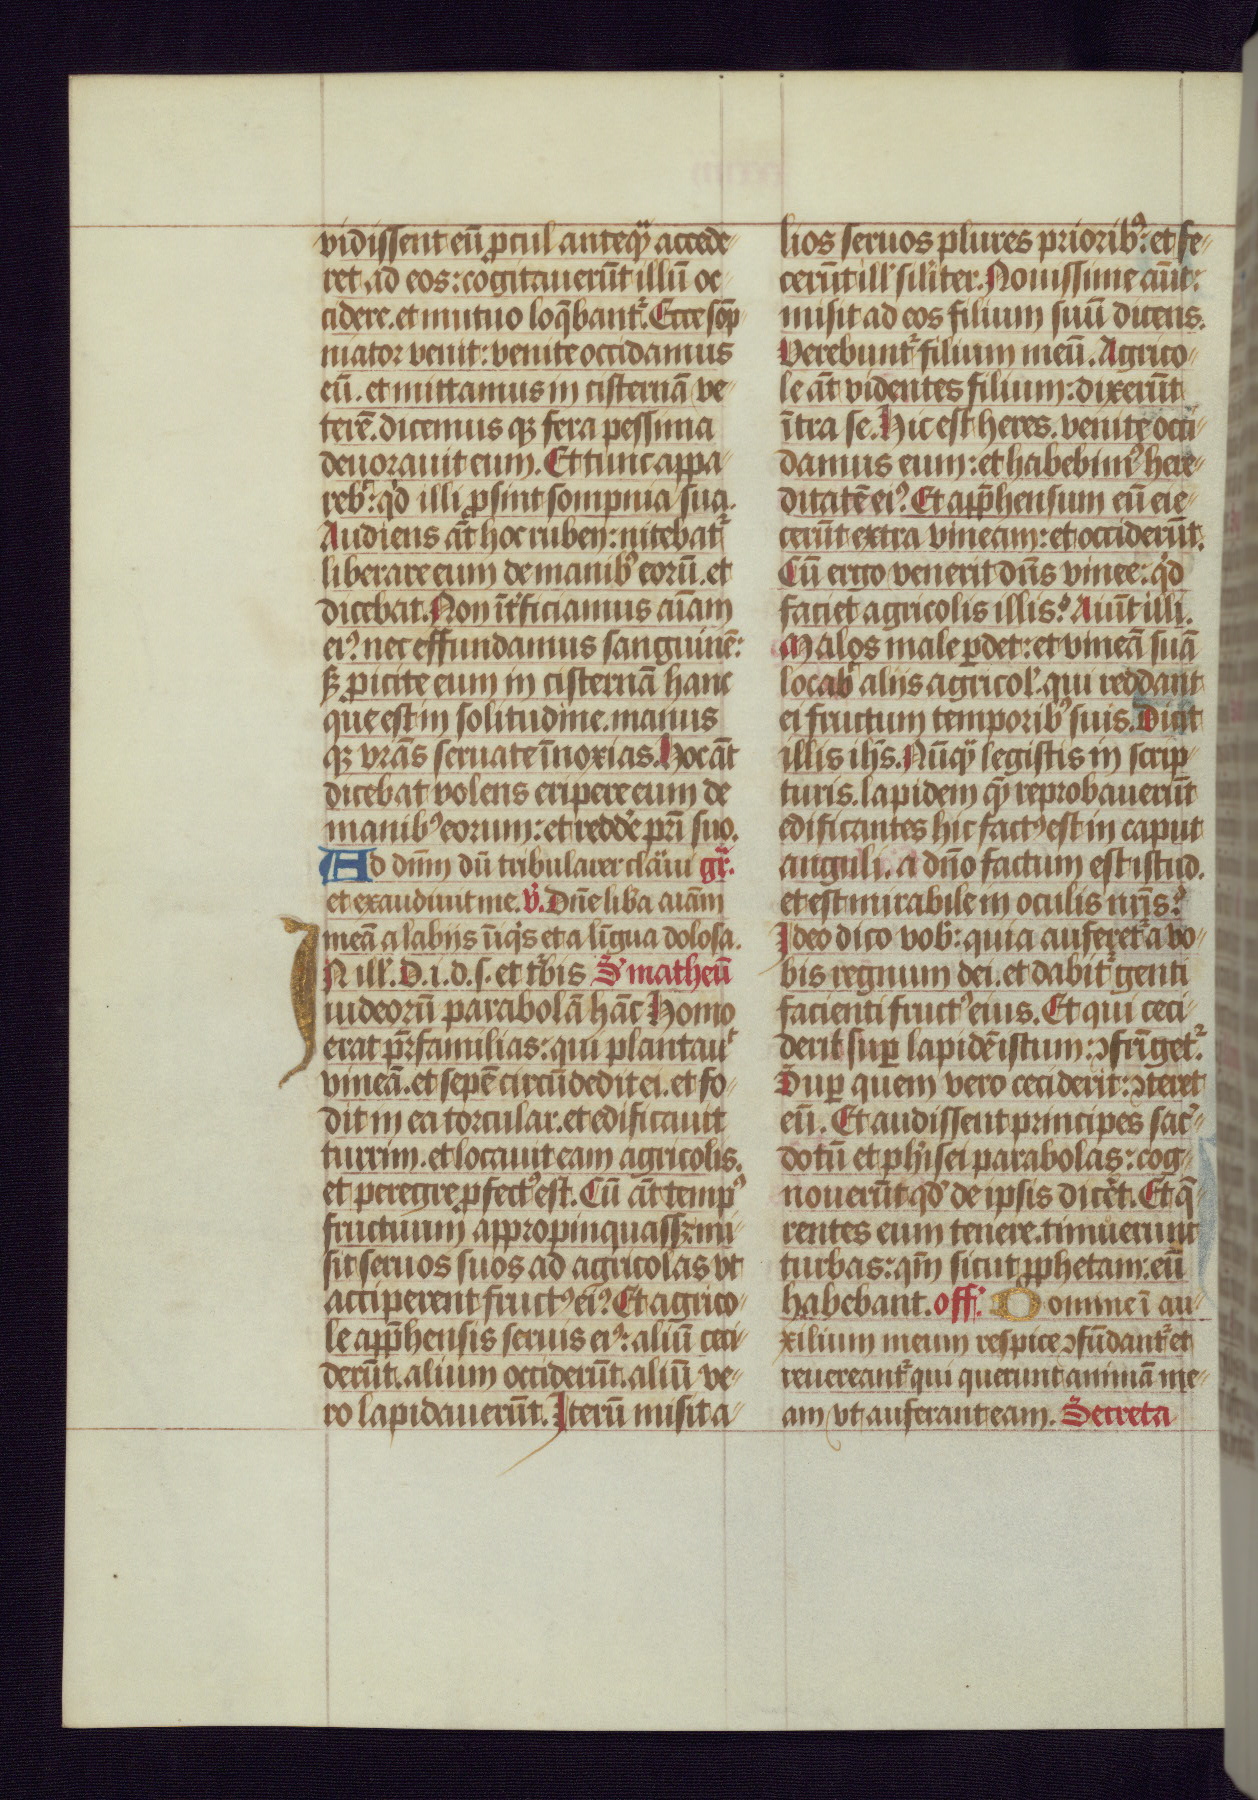 vidissent eū ꝓcul anteqͣ accede-
ret ad eos: cogitauerūt illū oc-
cidere. et mutuo loq̄bantᷣ. Ecce sōp-
niator venit: venite occidamus
eū. et mittamus in cisternā ve-
terē. dicemus qꝫ fera pessima
deuorauit eum. Et tunc appa-
rebᷣ: qͥd illi ꝓsint sompnia sua.
Audiens āt hoc ruben: nitebatᷣ
liberare eum de manibꝰ eorū. et
dicebat. Non īt̄ficiamus aīam
eiꝰ. nec effundamus sanguinē:
sꝫ ꝓicite eum in cisternā hanc
que est in solitudine. manus
qꝫ vrās seruate īnoxias. Hoc āt
dicebat volens eripere eum de
manibꝰ eorum: et reddē pr̄i suo.
Ad dn̄m dū tribularer clamͣui gr̄.
et exaudiuit me. v̄. Dn̄e lib̄a aīam
meā a labijs īiqͥs et a lingua dolosa.
IN ill. D. i. d. s. et tᷣbis S matheū
iudeorū parabolā hāc Homo
erat pr̄familias: qui plantauᷣ
vineā. et sepē circūdedit ei. et fo-
dit in ea torcular. et edificauit
turrim. et locauit eam agricolis.
et peregre ꝓfectꝰ est. Cū āt tempꝰ
fructuum appropinquassꝫ: mi-
sit seruos suos ad agricolas vt
acciperent fructꝰ eiꝰ. Et agrico-
le app̄hensis seruis eiꝰ: aliū ceci-
derūt. alium occiderūt. aliū ve-
ro lapidauerūt. Iterū misit a-
lios seruos plures prioribꝰ: et fe-
cerūt ill sil̄iter. Nouissime aūt:
misit ad eos filium suū dicens.
Verebuntᷣ filium meū. Agrico-
le āt videntes filium: dixerūt
ītra se. Hic est heres. venite occi-
damus eum: et habebimꝰ here-
ditatē eiꝰ. Et app̄hensum eū eie-
cerūt extra vineam: et occiderūt.
Cū ergo venerit dn̄s vinee: qͥd
faciet agricolis illis? Aiūt illi.
Malos male ꝑdet: et vineā suā
locabᷣ alijs agricol. qui reddant
ei fructum temporibꝰ suis. Dicit
illis ih̄s. Nūqͣ legistis in scrip-
turis. lapidem quē reprobauerūt
edificantes hic factꝰ est in caput
anguli. a dn̄o factum est istud.
et est mirabile in oculis nr̄is?
Ideo dico vob: quia auferetᷣ a vo-
bis regnum dei. et dabitᷣ genti
facienti fructꝰ eius. Et qui ceci-
derit suꝑ lapidē istum: ꝯfrīgetᷣ.
Suꝑ quem vero ceciderit: ꝯteret
eū. Et audissent principes sacᷣ-
dotū et phᷣisei parabolas: cog-
nouerūt qd̄ de ipsis dicēt. Et q̄-
rentes eum tenere. timuerunt
turbas: qm̄ sicut ꝓphetam: eū
habebant. off. Domine ī au-
xilium meum respice ꝯfūdantᷣ et
reuereantᷣ qui querunt animā me-
am vt auferant eam. Secreta